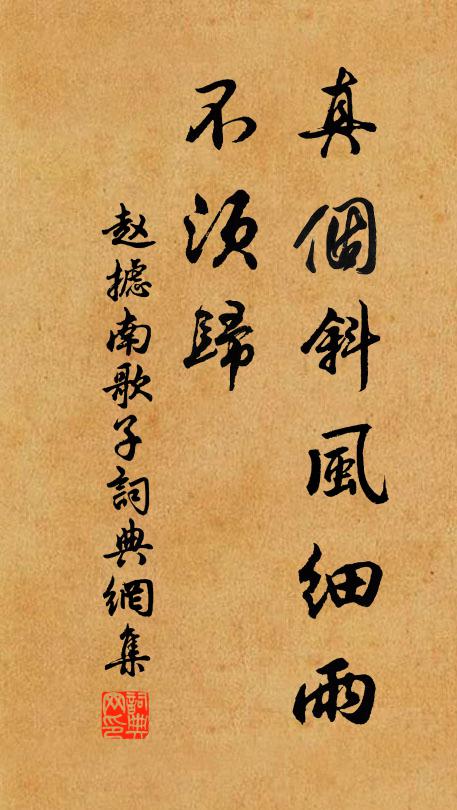 真個斜風細雨
不須歸
赵摅南歌子詞典網集
詞典
网印